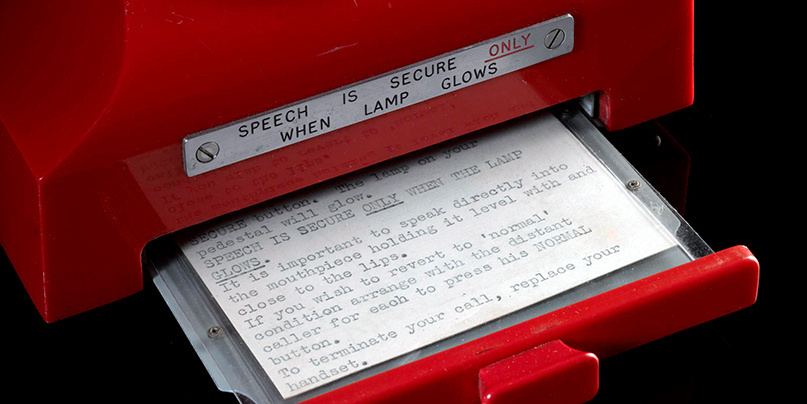 SPEECH IS SECURE ONLY
WHEN LAMP GLOWS
SECURE button. The lamp on your
pedestal will glow.
SPEECH IS SECURE ONLY WHEN THE LAMP
GLOWS.
It is important to speak directly into
the mouthpiece holding it level with and
close to the lips.
If you wish to revert to 'normal'
condition arrange with the distant
caller for each to press his NORMAL
button.
To terminate your call, replace your
handset.